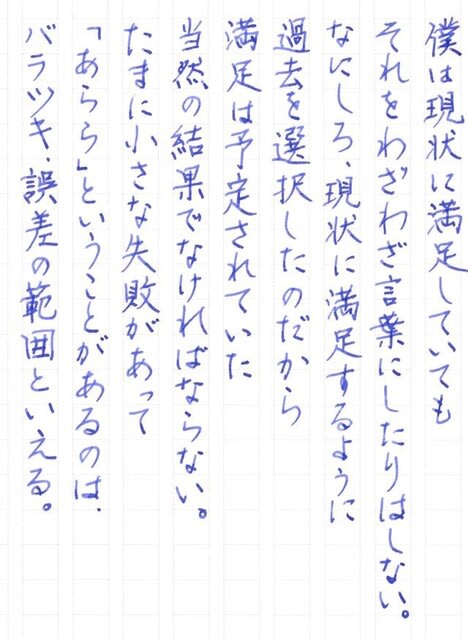 僕は現状に満足していても
それをわざわざ言葉にしたりはしない。
なにしろ、現状に満足するように
過去を選択したのだから
満足は予定されていた
当然の結果でなければならない。
たまに小さな失敗があって
「あらら」ということがあるのは、
バラツキ、誤差の範囲といえる。